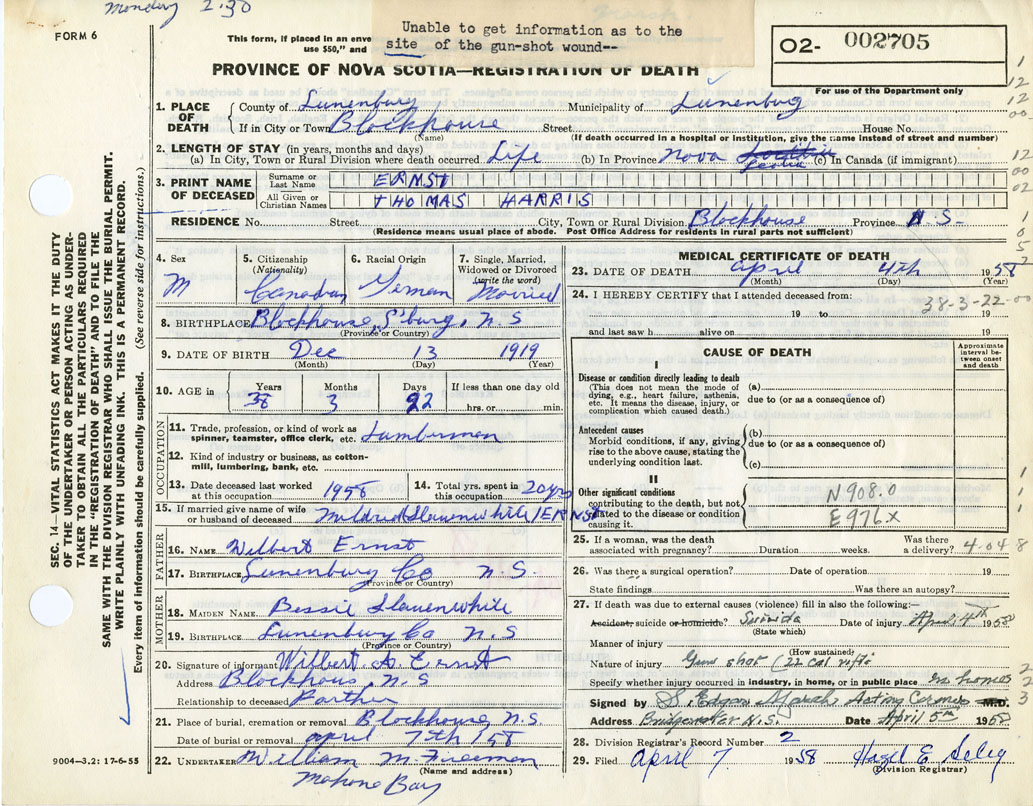 Monday 2.30
FORM 6
This form, if placed in an enve
use $50," and
Unable to get information as to the
site of the gun-shot wound--
O2- 002705
For use of the Department only
PROVINCE OF NOVA SCOTIA—REGISTRATION OF DEATH
SEC. 14—VITAL STATISTICS ACT MAKES IT THE DUTY
OF THE UNDERTAKER OR PERSON ACTING AS UNDER-
TAKER TO OBTAIN ALL THE PARTICULARS REQUIRED
IN THE "REGISTRATION OF DEATH" AND TO FILE THE
SAME WITH THE DIVISION REGISTRAR WHO SHALL ISSUE THE BURIAL PERMIT.
WRITE PLAINLY WITH UNFADING INK. THIS IS A PERMANENT RECORD.
Every item of information should be carefully supplied. (See reverse side for instructions.)
1. PLACE OF DEATH County of Lunenburg Municipality of Lunenburg
If in City or Town Blockhouse Street House No.
(Name) (If death occurred in a hospital or institution, give the name instead of street and number)
2. LENGTH OF STAY (in years, months and days)
(a) In City, Town or Rural Division where death occurred Life (b) In Province Nova Scotia (c) In Canada (if immigrant)
3. PRINT NAME OF DECEASED Surname or Last Name ERNST
All Given or Christian Names THOMAS HARRIS
RESIDENCE No. Street City, Town or Rural Division Blockhouse Province N.S.
(Residence means usual place of abode. Post Office Address for residents in rural parts not sufficient)
4. Sex M
5. Citizenship (Nationality) Canadian
6. Racial Origin German
7. Single, Married, Widowed or Divorced (write the word) Married
8. BIRTHPLACE Blockhouse, L'burg, N.S
(Province or Country)
9. DATE OF BIRTH Dec 13 1919
(Month) (Day) (Year)
10. AGE in Years 38 Months 3 Days 22 If less than one day old
hrs. or min.
OCCUPATION
11. Trade, profession, or kind of work as spinner, teamster, office clerk, etc. Lumberman
12. Kind of industry or business, as cotton-mill, lumbering, bank, etc.
13. Date deceased last worked at this occupation 1958
14. Total yrs. spent in this occupation 20 yrs
15. If married give name of wife or husband of deceased Mildred Slauenwhite / ERNST
FATHER
16. NAME Wilbert Ernst
17. BIRTHPLACE Lunenburg Co N.S.
(Province or Country)
MOTHER
18. MAIDEN NAME Bessie Slauenwhite
19. BIRTHPLACE Lunenburg Co N.S
(Province or Country)
20. Signature of informant Wilbert A. Ernst
Address Blockhous, N.S
Relationship to deceased Farther
21. Place of burial, cremation or removal Blockhouse, N.S.
Date of burial or removal April 7th 58
22. UNDERTAKER William M. Freeman
(Name and address)
Mahone Bay
9004—3.2: 17-6-55
MEDICAL CERTIFICATE OF DEATH
23. DATE OF DEATH April 4th 1958
(Month) (Day) (Year)
24. I HEREBY CERTIFY that I attended deceased from:
38-3-22-00
19 to 19
and last saw h alive on 19
CAUSE OF DEATH
Approximate interval between onset and death
I
Disease or condition directly leading to death (a)
(This does not mean the mode of dying, e.g., heart failure, asthenia, etc. It means the disease, injury, or complication which caused death.)
due to (or as a consequence of)
Antecedent causes (b)
Morbid conditions, if any, giving rise to the above cause, stating the underlying condition last.
due to (or as a consequence of)
(c)
II
Other significant conditions contributing to the death, but not related to the disease or condition causing it.
N 908.0
E 976.x
25. If a woman, was the death associated with pregnancy? Duration weeks. Was there a delivery? 4-04 8
26. Was there a surgical operation? Date of operation 19
State findings Was there an autopsy?
27. If death was due to external causes (violence) fill in also the following:—
Accident, suicide or homicide? Suicide Date of injury April 4th 1958
(State which)
Manner of injury
(How sustained)
Nature of injury Gun shot (22 cal rifle
Specify whether injury occurred in industry, in home, or in public place In home
Signed by S. Edgar March Acting Coroner M.D.
Address Bridgewater N.S. Date April 5th 1958
28. Division Registrar's Record Number 2
29. Filed April 7 1958 Hazel E Seley
(Division Registrar)